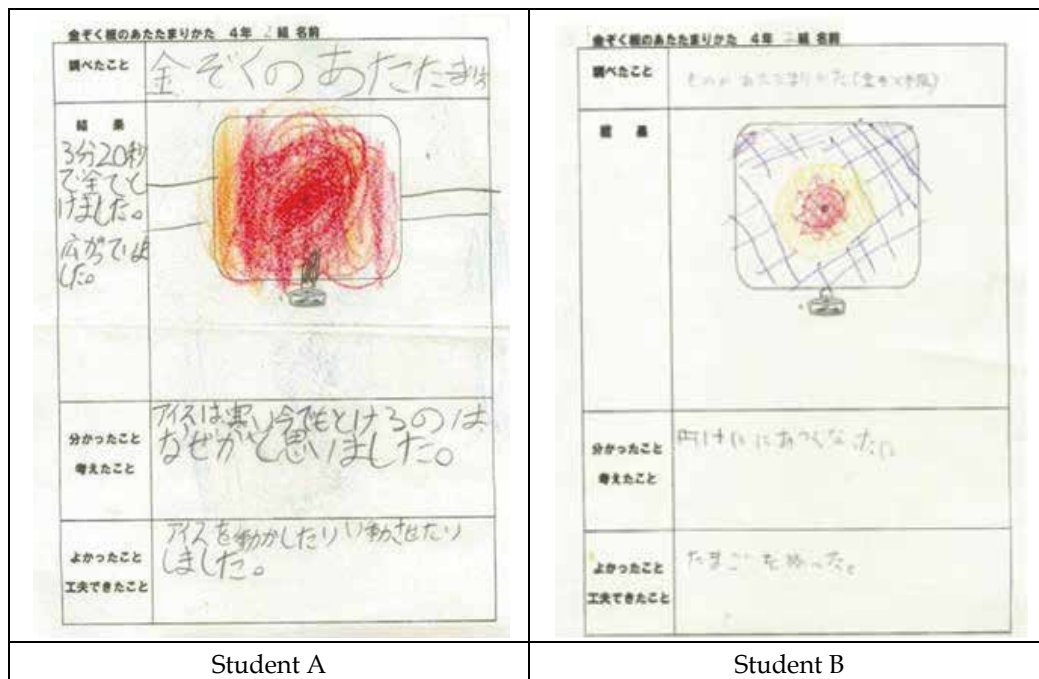 金ぞく板のあたたまりかた 4年 2組 名前
調べたこと
金ぞくのあたたまり
結果
3分20秒
で全てと
けました。
広がっていま
した。
分かったこと
考えたこと
アイスは寒い今でもとけるのは
なぜかと思いました。
よかったこと
工夫できたこと
アイスを動かしたりい動させたり
しました。
Student A
金ぞく板のあたたまりかた 4年 2組 名前
調べたこと
ものの あたたまりかた(金ぞく板)
結果
分かったこと
考えたこと
円けいにあつくなった。
よかったこと
工夫できたこと
たまごを
Student B